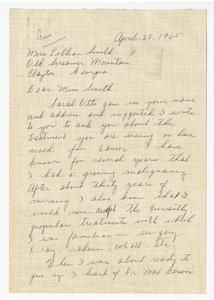 April 25, 1965
Miss Lillian Smith
Old Screamer Mountain
Clayton, Georgia
Dear Miss Smith,
Sarah Otto gave me your name
and address and suggested I write
to you to ask you about the
treatment you are using or have
used for cancer. I have
known for several years that
I had a growing malignancy
After about thirty years of
nursing I also knew that I
would never accept the currently
popular treatments with which
I was familiar - surgery,
X ray, radium, cobalt etc.
When I was about ready to
give up I heard of Dr Max Gerson